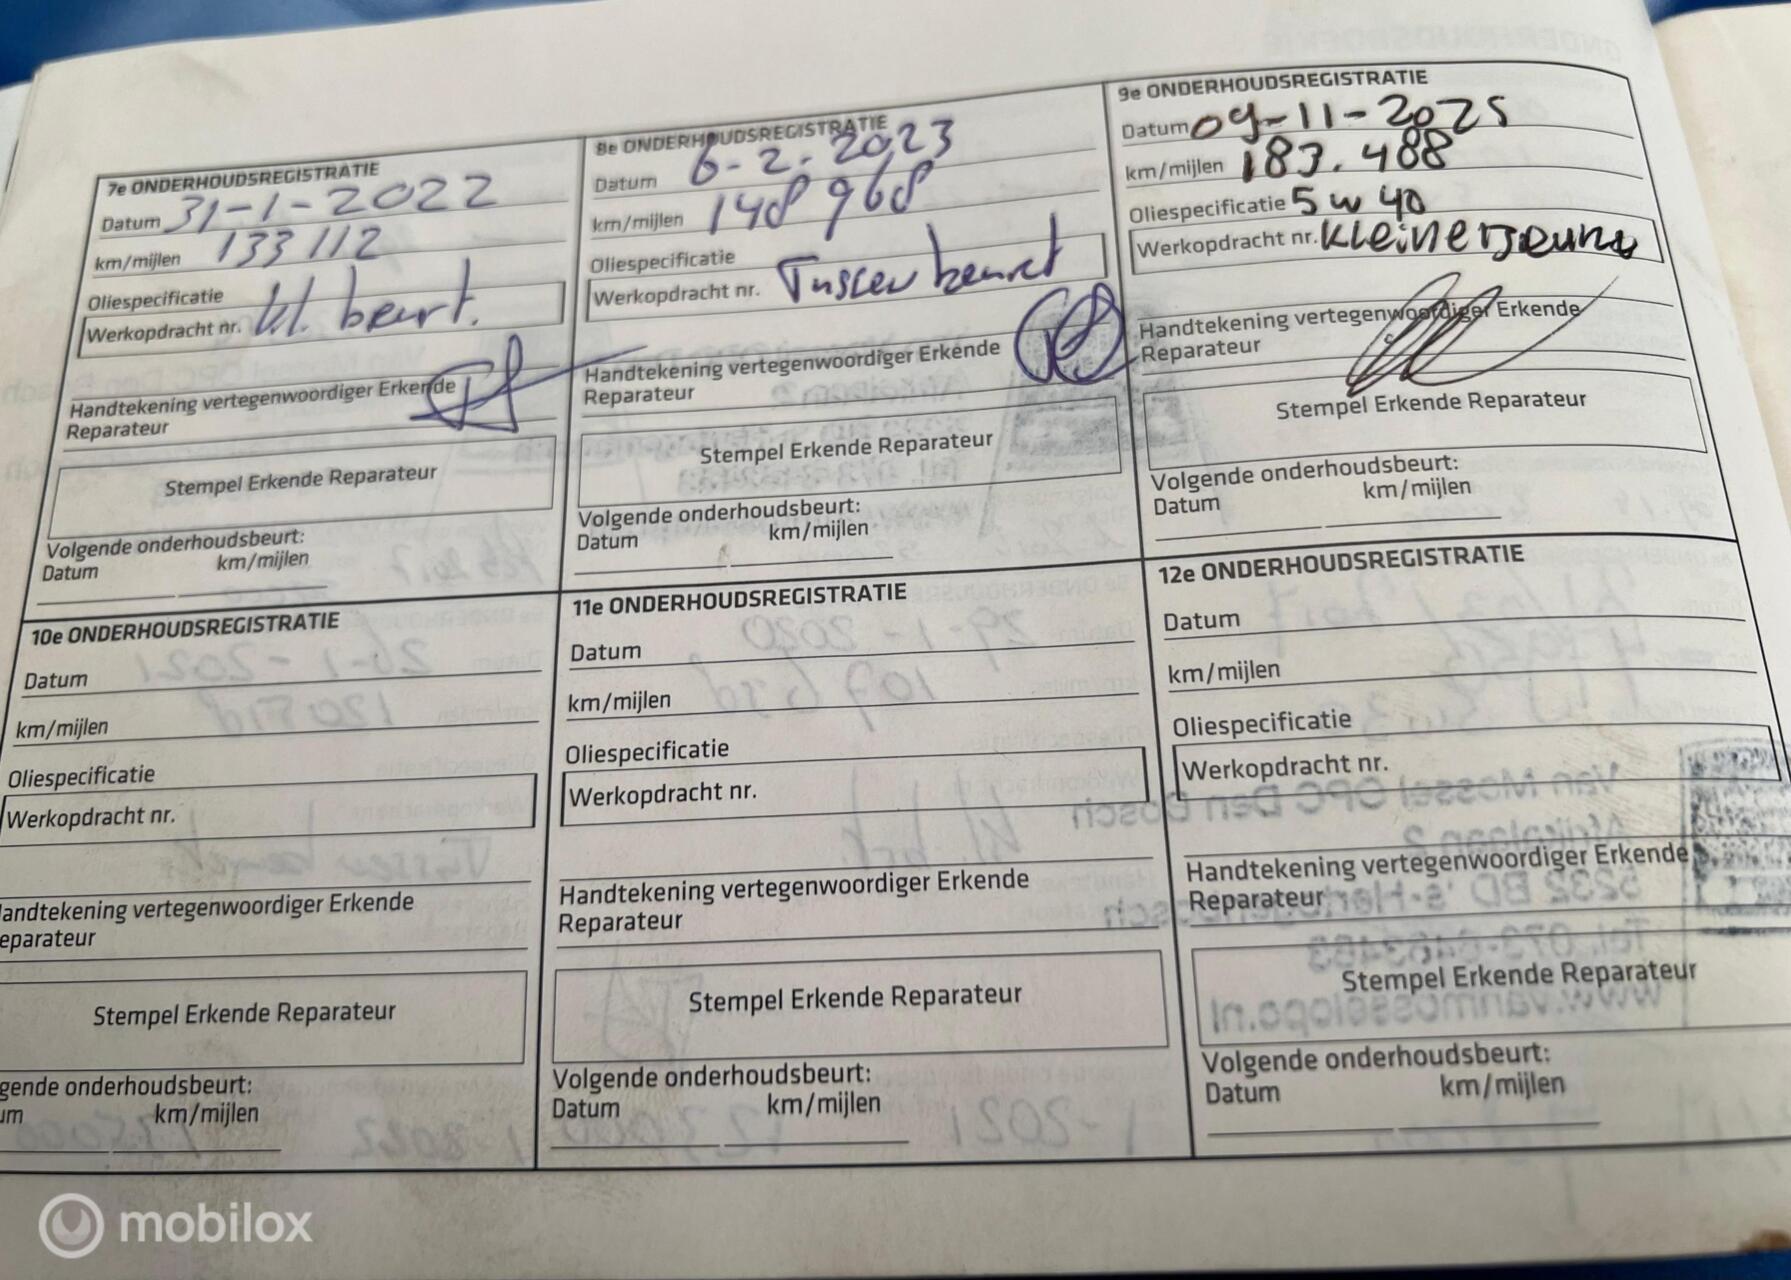 7e ONDERHOUDSREGISTRATIE
Datum 31-1-2022
km/mijlen 133 112
Oliespecificatie
Werkopdracht nr. kl. beurt.
Handtekening vertegenwoordiger Erkende
Reparateur
Stempel Erkende Reparateur
Volgende onderhoudsbeurt:
Datum km/mijlen
8e ONDERHOUDSREGISTRATIE
Datum 6-2-2023
km/mijlen 148 968
Oliespecificatie
Werkopdracht nr. Tussen beurt
Handtekening vertegenwoordiger Erkende
Reparateur
Stempel Erkende Reparateur
Volgende onderhoudsbeurt:
Datum km/mijlen
9e ONDERHOUDSREGISTRATIE
Datum 09-11-2025
km/mijlen 183.488
Oliespecificatie 5 w 40
Werkopdracht nr.
Handtekening vertegenwoordiger Erkende
Reparateur
Stempel Erkende Reparateur
Volgende onderhoudsbeurt:
Datum km/mijlen
10e ONDERHOUDSREGISTRATIE
Datum
km/mijlen
Oliespecificatie
Werkopdracht nr.
andtekening vertegenwoordiger Erkende
eparateur
Stempel Erkende Reparateur
gende onderhoudsbeurt:
um km/mijlen
11e ONDERHOUDSREGISTRATIE
Datum
km/mijlen
Oliespecificatie
Werkopdracht nr.
Handtekening vertegenwoordiger Erkende
Reparateur
Stempel Erkende Reparateur
Volgende onderhoudsbeurt:
Datum km/mijlen
12e ONDERHOUDSREGISTRATIE
Datum
km/mijlen
Oliespecificatie
Werkopdracht nr.
Handtekening vertegenwoordiger Erkende
Reparateur
Stempel Erkende Reparateur
Volgende onderhoudsbeurt:
Datum km/mijlen
mobilox